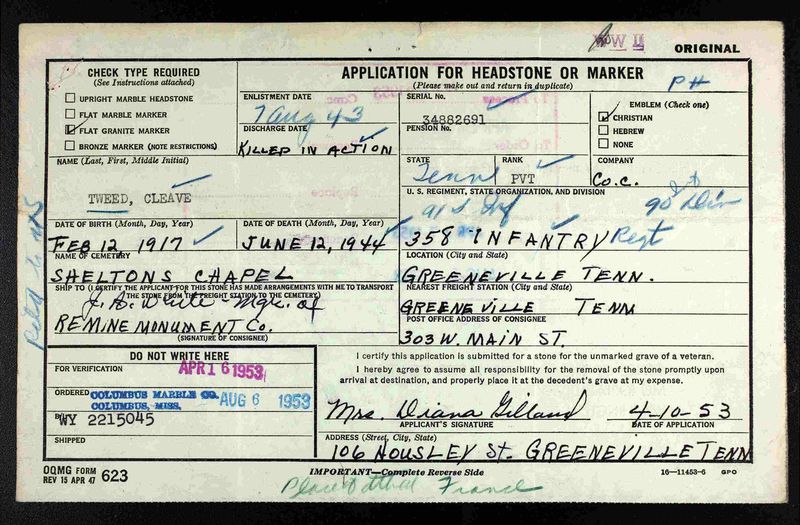 WW II
ORIGINAL
APPLICATION FOR HEADSTONE OR MARKER
(Please make out and return in duplicate)
PH
CHECK TYPE REQUIRED
(See Instructions attached)
UPRIGHT MARBLE HEADSTONE
FLAT MARBLE MARKER
FLAT GRANITE MARKER
BRONZE MARKER (NOTE RESTRICTIONS)
ENLISTMENT DATE
7 Aug 43
DISCHARGE DATE
KILLED IN ACTION
SERIAL No.
34882691
PENSION No.
EMBLEM (Check one)
CHRISTIAN
HEBREW
NONE
NAME (Last, First, Middle Initial)
TWEED, CLEAVE
STATE
Tenn
RANK
PVT
COMPANY
Co. C.
U. S. REGIMENT, STATE ORGANIZATION, AND DIVISION
90 Inf Div
358 INFANTRY Regt
DATE OF BIRTH (Month, Day, Year)
FEB 12 1917
DATE OF DEATH (Month, Day, Year)
JUNE 12, 1944
NAME OF CEMETERY
SHELTONS CHAPEL
LOCATION (City and State)
GREENEVILLE TENN.
SHIP TO (I CERTIFY THE APPLICANT FOR THIS STONE HAS MADE ARRANGEMENTS WITH ME TO TRANSPORT
THE STONE FROM THE FREIGHT STATION TO THE CEMETERY)
J. D. White - Mgr. of
REMINE MONUMENT Co.
(SIGNATURE OF CONSIGNEE)
NEAREST FREIGHT STATION (City and State)
GREENEVILLE TENN
POST OFFICE ADDRESS OF CONSIGNEE
303 W. MAIN ST.
DO NOT WRITE HERE
FOR VERIFICATION
APR 16 1953
ORDERED
COLUMBUS MARBLE CO.
COLUMBUS, MISS.
AUG 6 1953
B/WY 2215045
SHIPPED
I certify this application is submitted for a stone for the unmarked grave of a veteran.
I hereby agree to assume all responsibility for the removal of the stone promptly upon
arrival at destination, and properly place it at the decedent's grave at my expense.
Mrs. Diana Gilland
4-10-53
APPLICANT'S SIGNATURE
DATE OF APPLICATION
ADDRESS (Street, City, State)
106 HOUSLEY St. GREENEVILLE TENN
OQMG FORM
REV 15 APR 47
623
IMPORTANT—Complete Reverse Side
16—11453-6 GPO
Place of death France